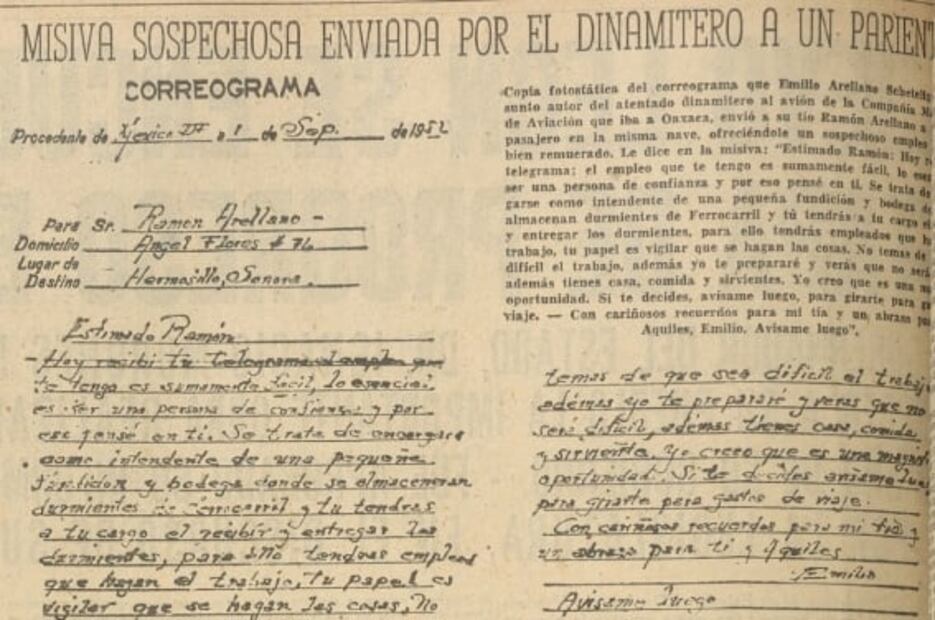 MISIVA SOSPECHOSA ENVIADA POR EL DINAMITERO A UN PARIENT
CORREOGRAMA
Procedente de México DF a 1 de Sep. de 1952
Para Sr. Ramon Arellano -
Domicilio Angel Flores # 76
Lugar de
Destino Hermosillo, Sonora.
Estimado Ramón:
- Hoy recibi tu telegrama el empleo que
te tengo es sumamente fácil, lo esencial
es ser una persona de confianza y por
eso pensé en ti. Se trata de encargarse
como intendente de una pequeña
fundidora y bodega donde se almacenan
durmientes de ferrocarril y tu tendras
a tu cargo el recibir y entregar los
durmientes, para ello tendras emplead
que hagan el trabajo, tu papel es
vigilar que se hagan las cosas, No
Copia fotostática del correograma que Emilio Arellano
sunto autor del atentado dinamitero al avión de la Compañía
de Aviación que iba a Oaxaca, envió a su tío Ramón Arellano
pasajero en la misma nave, ofreciéndole un sospechoso empleo
bien remuerado. Le dice en la misiva: "Estimado Ramón: Hoy
telegrama; el empleo que te tengo es sumamente fácil, lo
ser una persona de confianza y por eso pensé en ti. Se trata de
garse como intendente de una pequeña fundición y bodega
almacenan durmientes de Ferrocarril y tú tendrás a tu cargo el
y entregar los durmientes, para ello tendrás empleados que
trabajo, tu papel es vigilar que se hagan las cosas. No temas de
difícil el trabajo, además yo te prepararé y verás que no será
además tienes casa, comida y sirvientes. Yo creo que es una
oportunidad. Si te decides, avísame luego, para girarte para
viaje. — Con cariñosos recuerdos para mi tía y un abrazo
Aquiles, Emilio. Avísame luego".
temas de que sea dificil el trabajo
además yo te prepararé y veras que no
será dificil, además tienes casa, comida
y sirvienta, yo creo que es una
oportunidad. Si te decides avisame
para girarte para gastos de viaje.
Con cariñosos recuerdos para mi tía y
un abrazo para ti y Aquiles
Emilio
Avisame luego